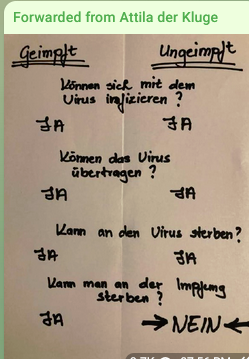 Forwarded from Attila der Kluge
Geimpft Ungeimpft
Können sich mit dem
Virus infizieren?
JA JA
Können das Virus
übertragen?
JA JA
Kann an den Virus sterben?
JA JA
Kann man an der Impfung
sterben?
JA → NEIN ←